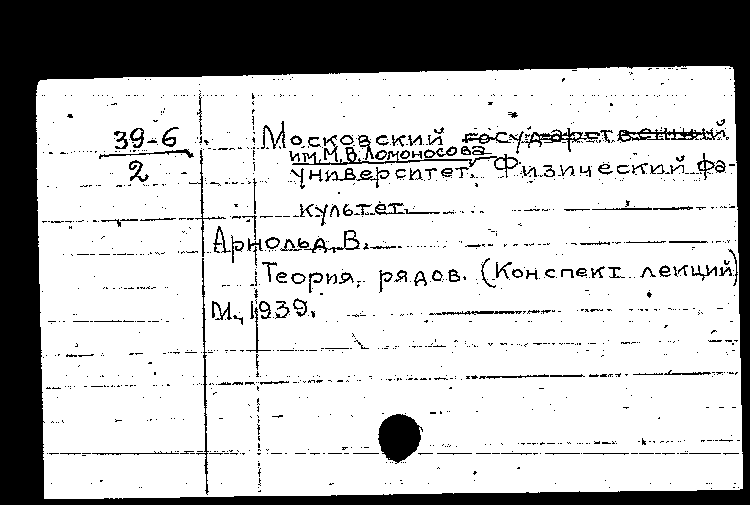 39-6
2
Московский государственный
им. М. В. Ломоносова
университет. Физический фа-
культет.
Арнольд, В.
Теория рядов. (Конспект лекций)
М., 1939.